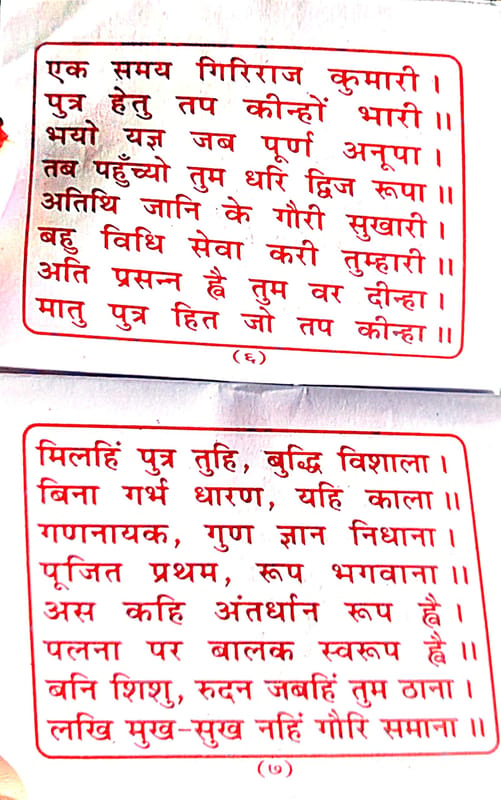 एक समय गिरिराज कुमारी ।
पुत्र हेतु तप कीन्हों भारी ॥
भयो यज्ञ जब पूर्ण अनूपा ।
तब पहुँच्यो तुम धरि द्विज रूपा ॥
अतिथि जानि के गौरी सुखारी ।
बहु विधि सेवा करी तुम्हारी ॥
अति प्रसन्न ह्वै तुम वर दीन्हा ।
मातु पुत्र हित जो तप कीन्हा ॥
(६)
मिलहिं पुत्र तुहि, बुद्धि विशाला ।
बिना गर्भ धारण, यहि काला ॥
गणनायक, गुण ज्ञान निधाना ।
पूजित प्रथम, रूप भगवाना ॥
अस कहि अंतर्धान रूप ह्वै ।
पलना पर बालक स्वरूप ह्वै ॥
बनि शिशु, रुदन जबहिं तुम ठाना ।
लखि मुख-सुख नहिं गौरि समाना ॥
(७)